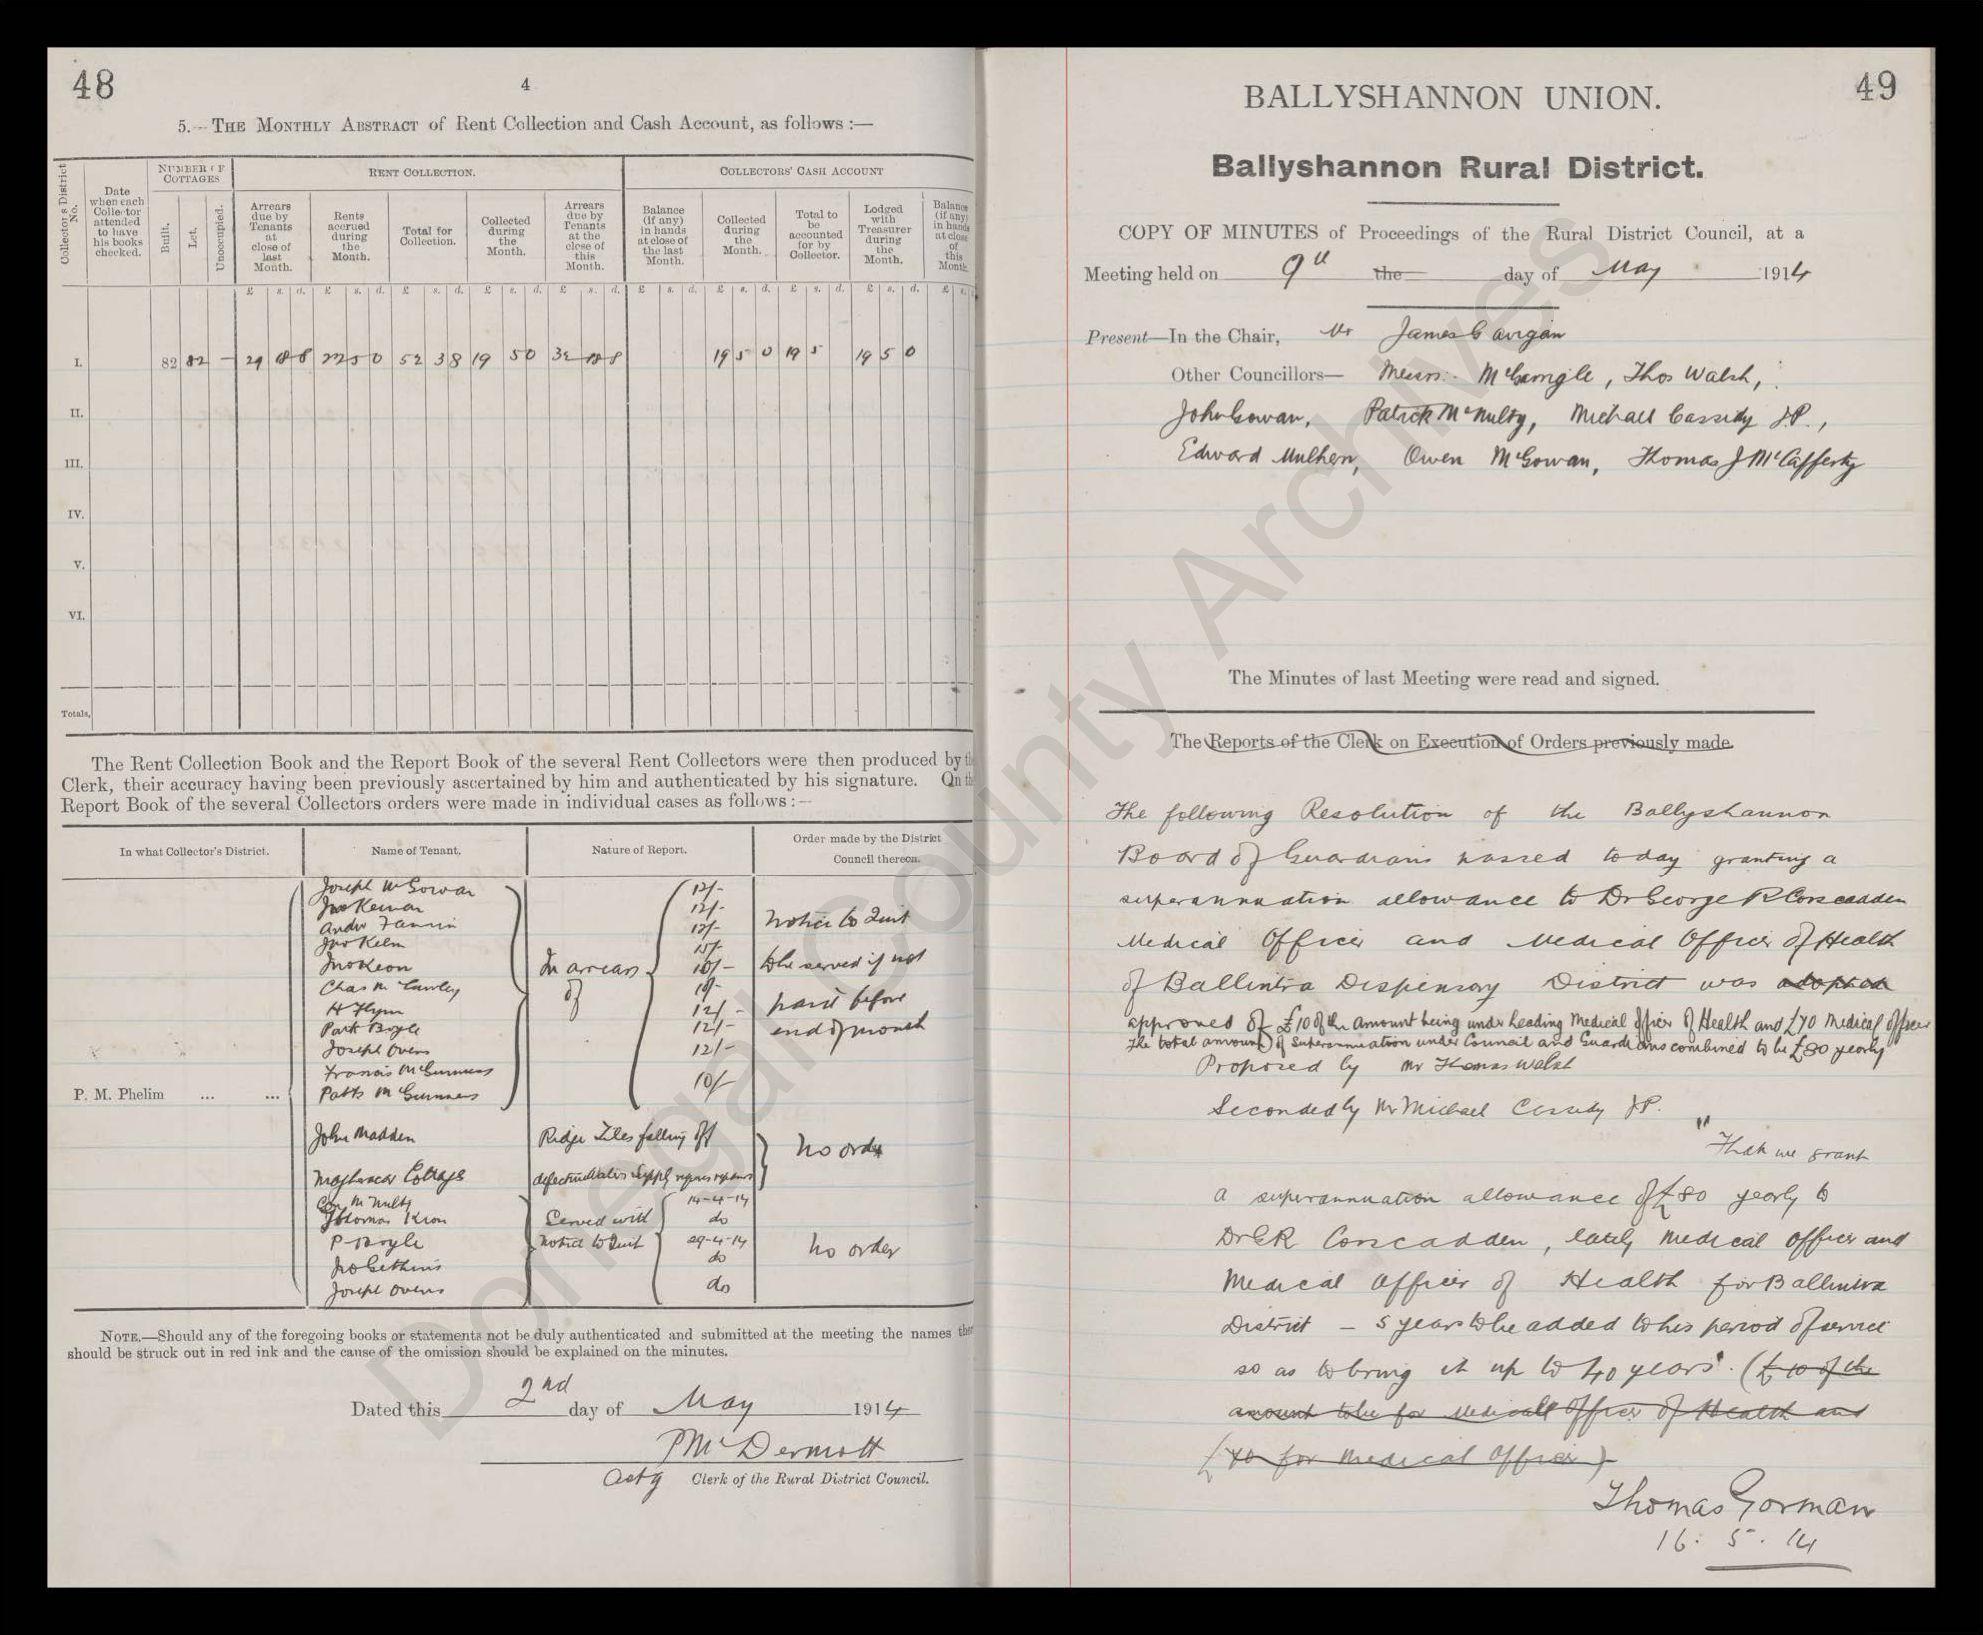 48
4
5.—THE MONTHLY ABSTRACT of Rent Collection and Cash Account, as follows :—
Collector's District No.
Date when each Collector attended to have his books checked.
NUMBER OF COTTAGES
Built.
Let.
Unoccupied.
RENT COLLECTION.
Arrears due by Tenants at close of last Month.
Rents accrued during the Month.
Total for Collection.
Collected during the Month.
Arrears due by Tenants at the close of this Month.
COLLECTORS' CASH ACCOUNT
Balance (if any) in hands at close of the last Month.
Collected during the Month.
Total to be accounted for by Collector.
Lodged with Treasurer during the Month.
Balance (if any) in hands at close of this Month
£ s. d. £ s. d. £ s. d. £ s. d. £ s. d. £ s. d. £ s. d. £ s. d. £ s. d. £ s.
I. 82 82 – 29 18 8 22 5 0 52 3 8 19 5 0 32 18 8 19 5 0 19 5 19 5 0
II.
III.
IV.
V.
VI.
Totals,
The Rent Collection Book and the Report Book of the several Rent Collectors were then produced by th
Clerk, their accuracy having been previously ascertained by him and authenticated by his signature. On th
Report Book of the several Collectors orders were made in individual cases as follows :—
In what Collector's District. Name of Tenant. Nature of Report. Order made by the District Council thereon.
Joseph McGowan 12/-
Jno Keenan 12/-
Andw Fannin 12/-
Jno Kelm 15/-
Jno Keon 10/-
Chas McCawley
H Flynn 12/-
Patk Boyle 12/-
Joseph Ovens 12/-
Francis McGuinness
Patk McGuinness 10/-
In arrears of
Notice to Quit
to be served if not
paid before
end of month
P. M. Phelim ... ...
John Madden Ridge Tiles falling off
Cottage defective water supply repairs
No order
McNulty 14-4-14
Thomas Keon do
P Boyle 29-4-14
Jno Gethins do
Joseph Ovens do
Served with
notice to Quit
No order
NOTE.—Should any of the foregoing books or statements not be duly authenticated and submitted at the meeting the names ther
should be struck out in red ink and the cause of the omission should be explained on the minutes.
Dated this 2nd day of May 1914
P McDermott
Actg Clerk of the Rural District Council.
49
BALLYSHANNON UNION.
Ballyshannon Rural District.
COPY OF MINUTES of Proceedings of the Rural District Council, at a
Meeting held on 9th the day of May 1914
Present—In the Chair, Mr James Gavigan
Other Councillors— Messrs. McGarrigle, Thos Walsh,
John Gowan, Patrick McNulty, Michael Cassidy J.P.,
Edward Mulhern, Owen McGowan, Thomas J McCafferty
The Minutes of last Meeting were read and signed.
The Reports of the Clerk on Execution of Orders previously made.
The following Resolution of the Ballyshannon
Board of Guardians passed today granting a
superannuation allowance to Dr George R Conscadden
Medical Officer and Medical Officer of Health
of Ballintra Dispensary District was adopted
approved of £10 of the amount being under heading Medical Officer of Health and £70 Medical Officer
The total amount of superannuation under Council and Guardians combined to be £80 yearly
Proposed by Mr Thomas Walsh
Seconded by Mr Michael Cassidy J.P.
"That we grant
a superannuation allowance of £80 yearly to
Dr G R Conscadden, lately Medical Officer and
Medical Officer of Health for Ballintra
District – 5 years to be added to his period of service
so as to bring it up to 40 years". (£10 of the
amount to be for Medical Officer of Health and
£70 for Medical Officer)
Thomas Gorman
16. 5. 14
Donegal County Archives